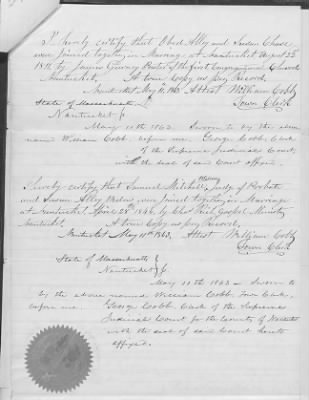 I hereby certify that Obed Alley and Susan Chase
were joined together in Marriage at Nantucket August 22
by James Gurney Pastor of the first Congregational Church
Nantucket. A true Copy as per Record,
Nantucket May 11, 1863. Attest William Cobb,
Town Clerk
State of Massachusetts
Nantucket
May 11th 1863. Sworn to by the above
named William Cobb, before me. George Cobb, Clerk
of the Supreme Judicial Court,
with the seal of said Court affixed.
I hereby certify that Samuel Mitchell, Judge of Probate
and Susan Alley Widow were joined together in Marriage
at Nantucket, April 28th 1846, by Gospel Minister
Nantucket. A true Copy as per Record,
Nantucket May 11th 1863, Attest William Cobb
Town Clerk
State of Massachusetts
Nantucket
May 11th 1863 Sworn to
by the above named William Cobb Town Clerk,
before me. George Cobb Clerk of the Supreme
Judicial Court for the County of Nantucket
with the seal of said Court hereto
affixed.